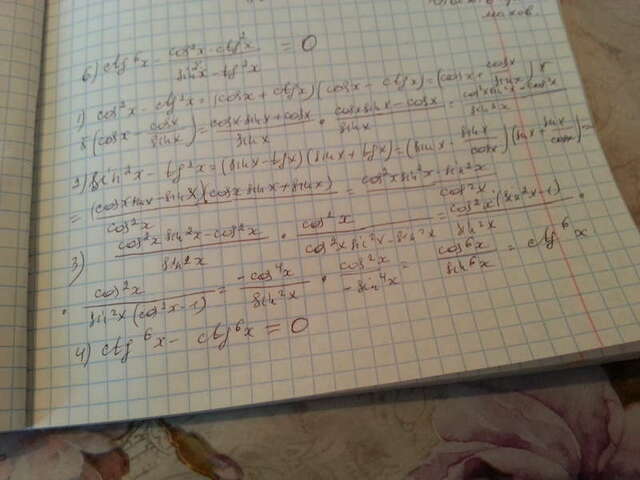 махов.
б) ctg⁶x - (cos²x - ctg²x)/(sin²x - tg²x) = 0
1) cos²x - ctg²x = (cosx + ctgx)(cosx - ctgx) = (cosx + cosx/sinx) x
x (cosx - cosx/sinx) = (cosx sinx + cosx)/sinx · (cosx sinx - cosx)/sinx = (cos²x sin²x - cos²x)/sin²x
2) sin²x - tg²x = (sinx - tgx)(sinx + tgx) = (sinx - sinx/cosx)(sinx + sinx/cosx) =
= (cosx sinx - sinx)(cosx sinx + sinx)/cos²x = (cos²x sin²x - sin²x)/cos²x
3) (cos²x sin²x - cos²x)/sin²x · cos²x/(cos²x sin²x - sin²x) = cos²x(sin²x - 1)/sin²x ·
· cos²x/(sin²x(cos²x - 1)) = -cos⁴x/sin²x · cos²x/-sin⁴x = cos⁶x/sin⁶x = ctg⁶x
4) ctg⁶x - ctg⁶x = 0